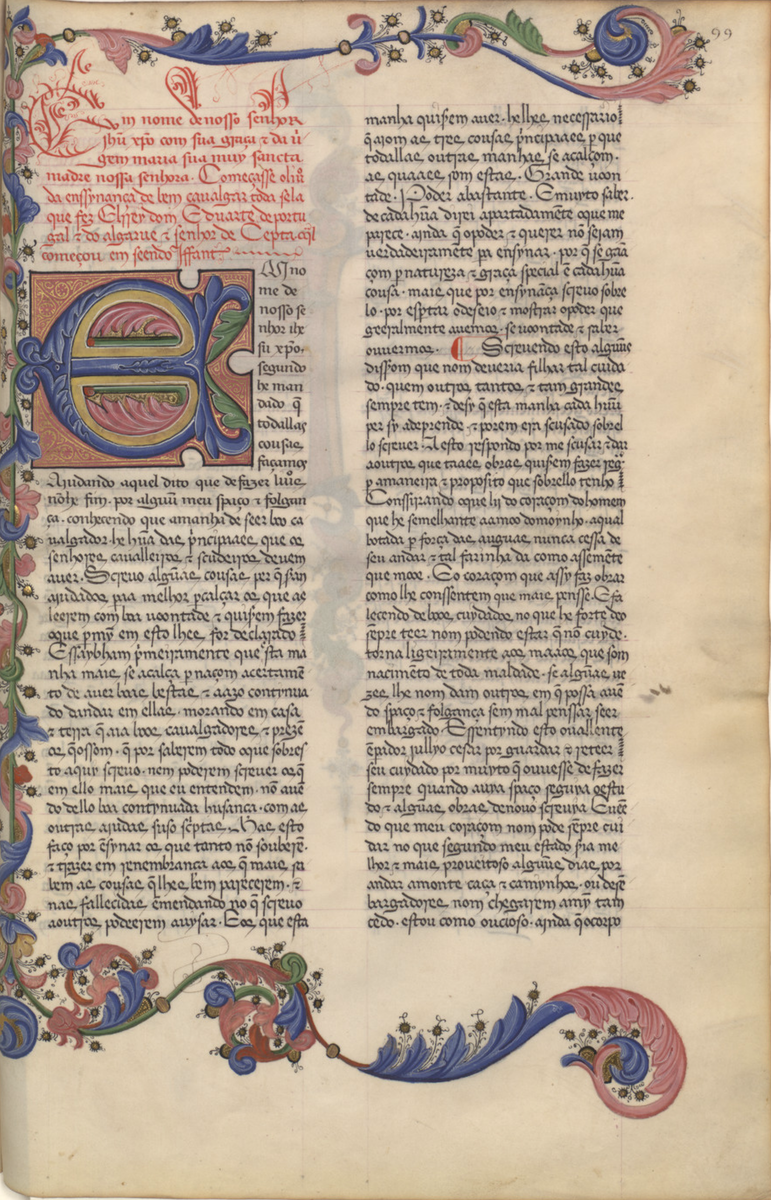 99
Em nome de nosso senhor
ihũ xpõ com sua graça & da ũ
gem maria sua muy sancta
madre nossa senhora. Começasse o liũ
da enssynança de bem caualgar toda sela
que fez Elrrey dom Eduarte de portu
gal & do algarue & senhor de Cepta o q̃l
começou em seendo Iffant
M no
me de
nosso se
nhor ihe
su xpõ.
segundo
he man
dado q̃
todallas
cousas
façamos
Ajudando aquel dito que de fazer liũe
nõ he fim. por alguũ meu spaço & folgan
ça. conhecendo que a manha de seer boo ca
ualgador. he hũa das pncipaaes que os
senhores caualleiros & scudeiros deuem
auer. Screuo algũas cousas per q̃ seran
ajudados pa melhor pcalçar os que as
leerem com boa uoontade & quisem fazer
o que p my em esto lhes for declarado
E ssaybham pmeiramente que sta ma
nha mais se acalça p naçom acertamẽ
to de auer boas bestas & aazo continua
do dandar em ellas. morando em casa
& terra q̃ aia boos caualgadores & prezẽ
os q̃ o ssom. q̃ por saberem todo o que sobres
to aquy screuo. nem poderem screuer os q̃
em ello mais que eu entendem. nõ auẽ
do dello boa contynuada husança. com as
outras ajudas suso scptas. E as esto
faço por ẽsynar os que tanto nõ souberẽ.
& trazer em renembrança aos q̃ mais sa
bem as cousas q̃ lhes bem parecerem. &
nas fallecidas ẽmendando no q̃ screuo
a outros podeerem auysar. E os que esta
manha quisem auer. he lhes necessario
q̃ aiom as tres cousas pncipaaes p que
todallas outras manhas se acalçom.
as quaaes som estas. Grande uoon
tade. Poder abastante. E muyto saber.
de cada hũa direi apartadamẽte o que me
parece. ainda q̃ o poder & querer nõ seiam
uerdadeiramẽte pa ensynar. por q̃ se gaã
çom p natureza & graça special ẽ cada hũa
cousa. mais que por ensynãça screuo sobre
lo. por esptar o deseio & mostrar o poder que
geeralmente auemos. se uoontade & saber
ouuermos. Screuendo esto alguũs
dissrom que nom deueria filhar tal cuida
do. quem outros tantos & tam grandes
sempre tem. & desy q̃ esta manha cada huũ
per sy adeprende. & porem era scusado sobrel
lo screuer. A esto respondo por me scusar & dar
a outros que taaes obras quisem fazer reg̃
p a maneira & proposito que sobrello tenho
Conssirando o que lii do coraçom do homem
que he semelhante aa moo do moynho. a qual
botada p força das auguas nunca cessa de
seu andar & tal farinha da como a ssemẽte
que mooe. E o coraçom que assy faz obrar
como lhe conssentem que mais pensse. E fa
lecendo de boos cuydados no que he forte do
sepre teer nom podendo estar q̃ nõ cuyde.
torna ligeiramente aos maaos que som
nacimẽto de toda maldade. se algũas ue
zes lhe nom dam outros em q̃ possa auẽ
do spaço & folgança sem mal penssar seer
embargado. E ssentyndo esto o uallente
ẽpador jullyo cesar por guardar & reteer
seu cuydado por muyto q̃ ouuesse de fazer
sempre quando auya spaço seguya o estu
do & algũas obras de nouo screuya. E ueẽ
do que meu coraçom nom pode sẽpre cui
dar no que segundo meu estado sria me
lhor & mais proueitoso algũus dias por
andar a monte caça & camynhos. ou desẽ
bargadores nom chegarem a my tam
cedo. estou como oucioso. ainda q̃ o corpo